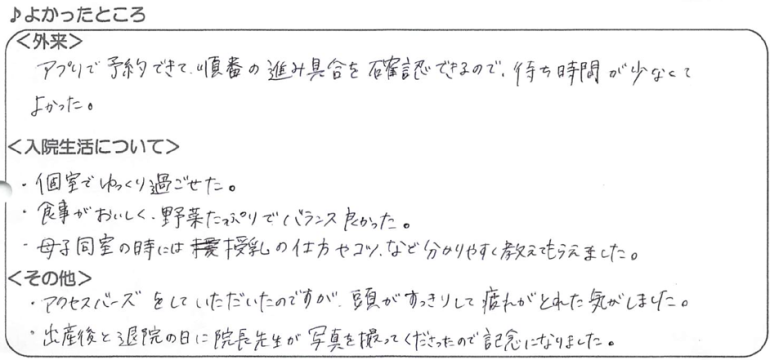 ♪よかったところ
<外来>
アプリで予約できて、順番の進み具合を確認できるので、待ち時間が少なくて
よかった。
<入院生活について>
・個室でゆっくり過ごせた。
・食事がおいしく、野菜たっぷりでバランス良かった。
・母子同室の時には授乳の仕方やコツ、など分かりやすく教えてもらえました。
<その他>
・アクセスバーズをしていただいたのですが、頭がすっきりして疲れがとれた気がしました。
・出産後と退院の日に院長先生が写真を撮ってくださったので記念になりました。